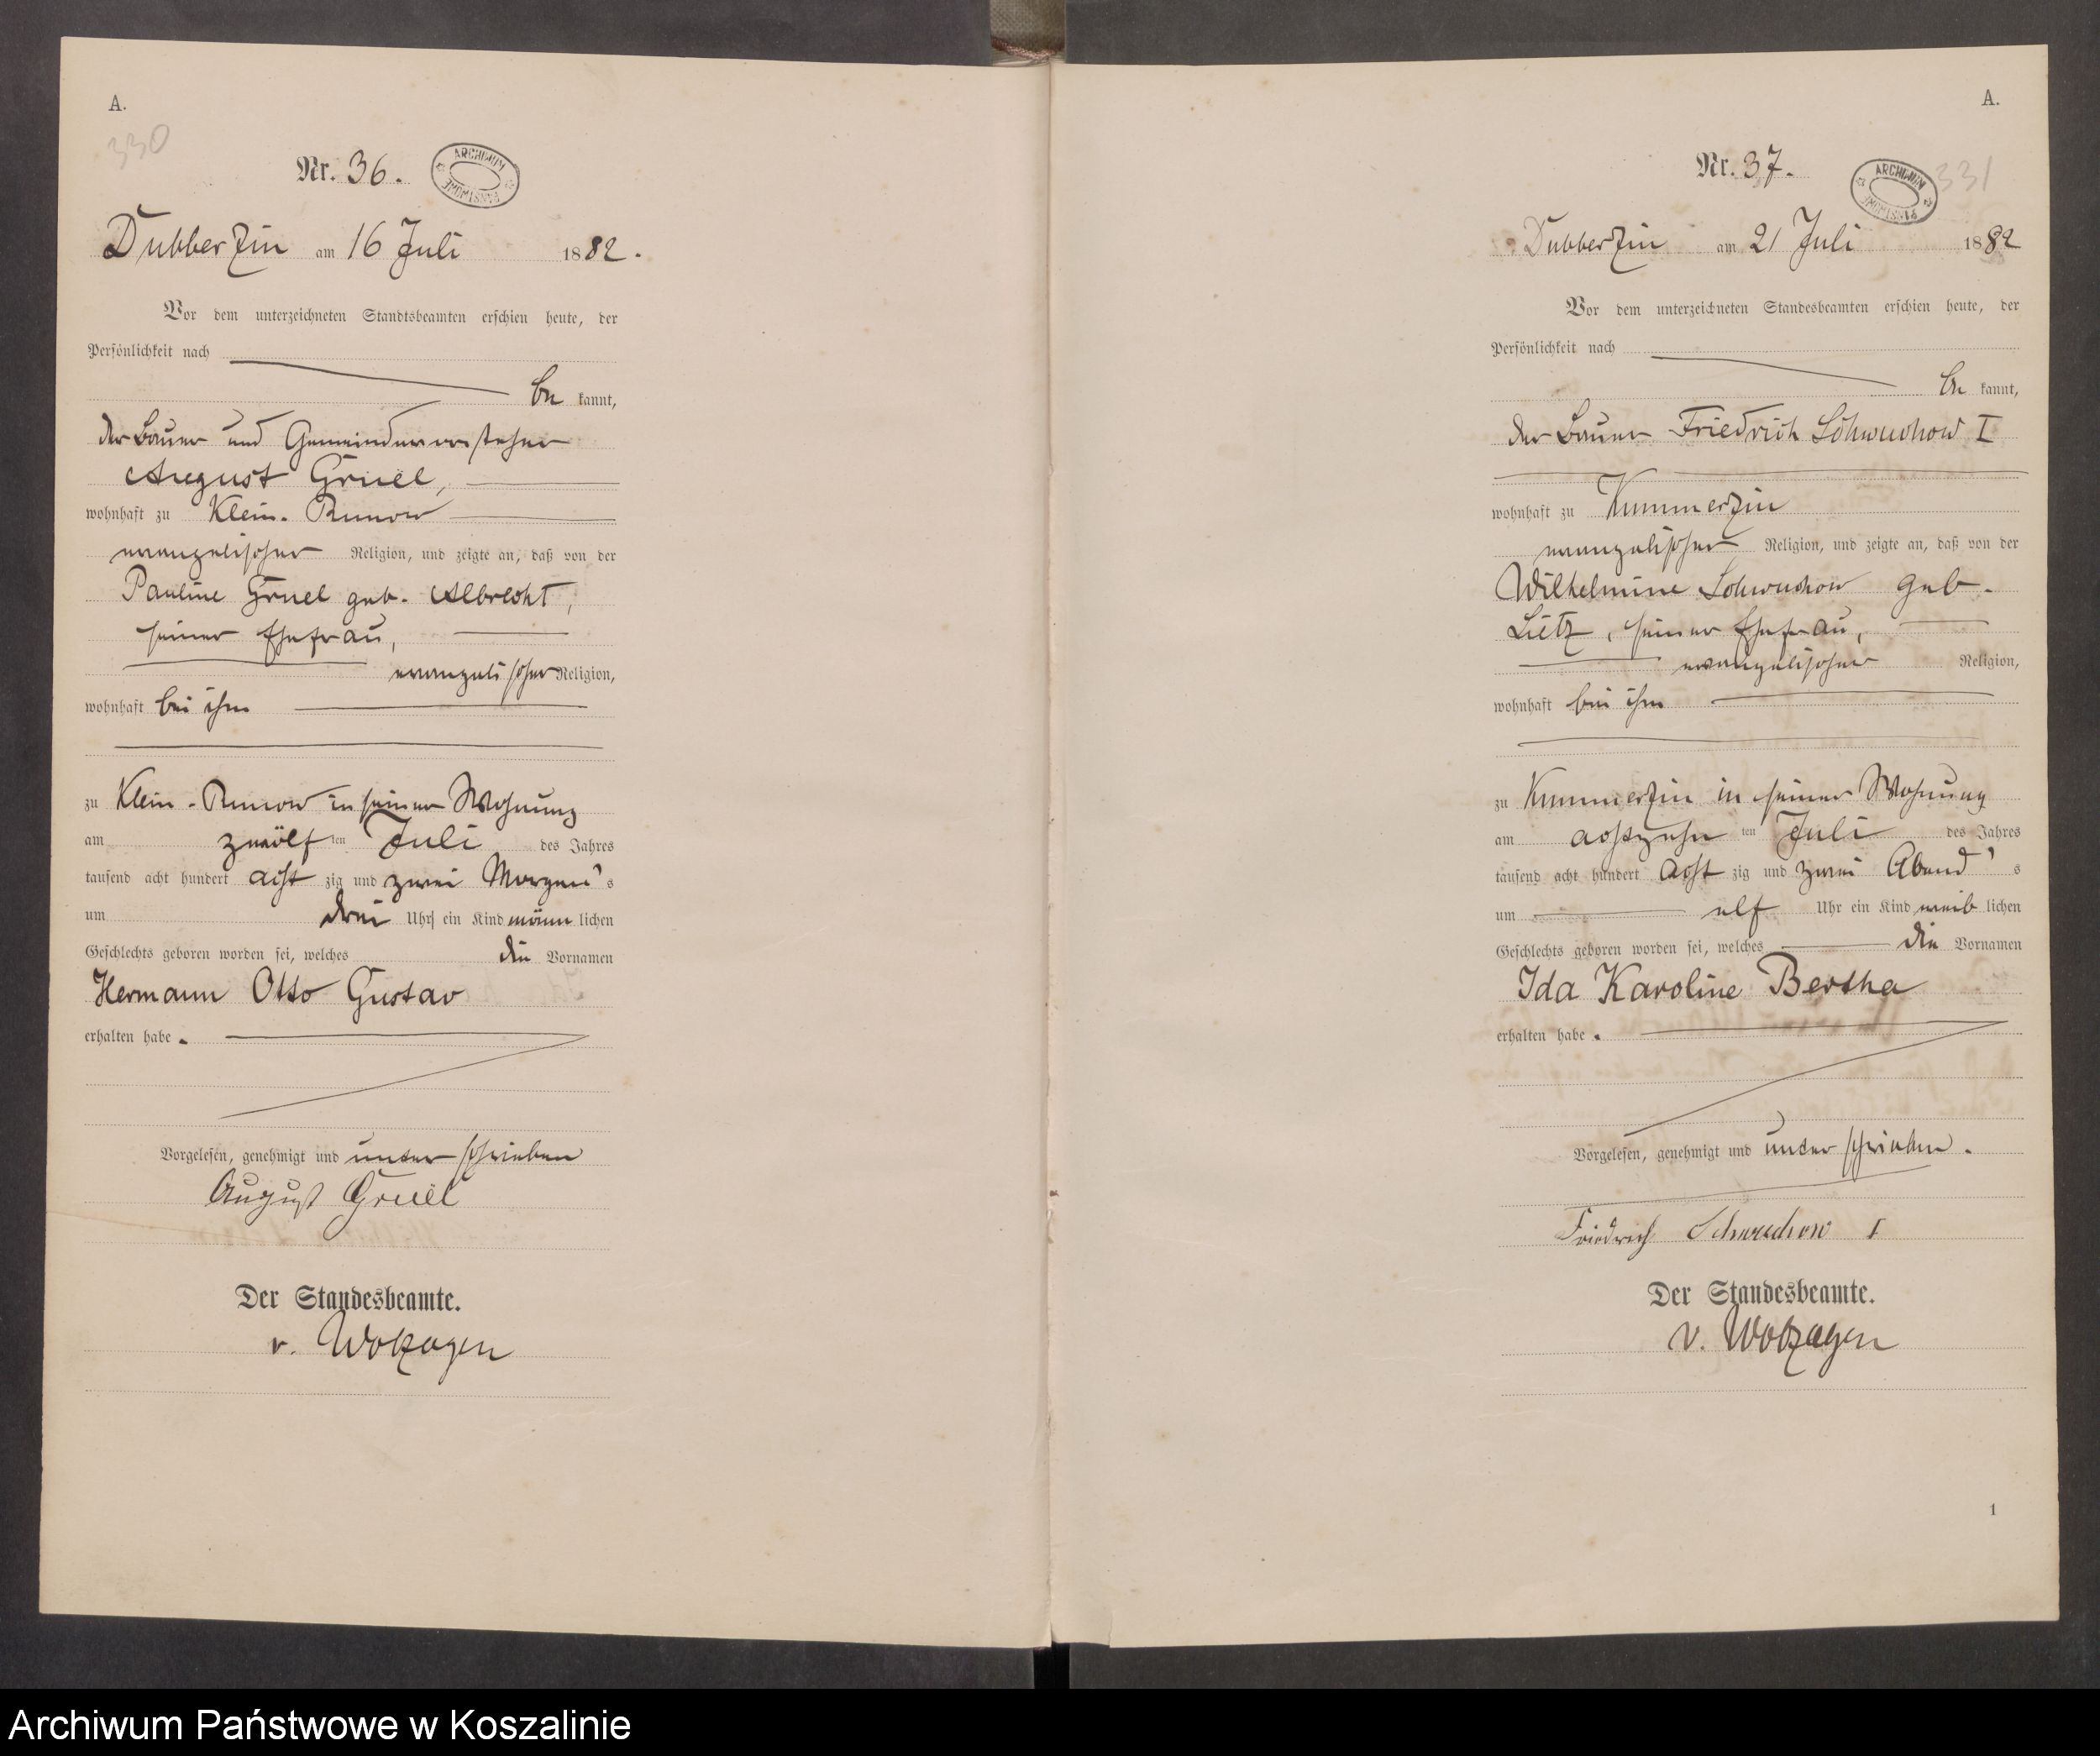 A.
330
Nr. 36.
ARCHIWUM PAŃSTWOWE
Dubberzin am 16 Juli 1882.
Vor dem unterzeichneten Standtsbeamten erschien heute, der
Persönlichkeit nach
be kannt,
der Bauer und Gemeindevorsteher
August Gruel,
wohnhaft zu Klein-Runow
evangelischer Religion, und zeigte an, daß von der
Pauline Gruel geb. Albrecht,
seiner Ehefrau,
evangelischer Religion,
wohnhaft bei ihm
zu Klein-Runow in seiner Wohnung
am zwölf ten Juli des Jahres
tausend acht hundert acht zig und zwei Morgen's
um drei Uhr ein Kind männ lichen
Geschlechts geboren worden sei, welches die Vornamen
Hermann Otto Gustav
erhalten habe.
Vorgelesen, genehmigt und unterschrieben
August Gruel
Der Standesbeamte.
v. Wolzogen
A.
331
Nr. 37.
ARCHIWUM PAŃSTWOWE
Dubberzin am 21 Juli 1882
Vor dem unterzeichneten Standesbeamten erschien heute, der
Persönlichkeit nach
be kannt,
der Bauer Friedrich Schwuchow I
wohnhaft zu Kummerzin
evangelischer Religion, und zeigte an, daß von der
Wilhelmine Schwuchow geb.
Lietz, seiner Ehefrau,
evangelischer Religion,
wohnhaft bei ihm
zu Kummerzin in seiner Wohnung
am achtzehn ten Juli des Jahres
tausend acht hundert acht zig und zwei Abend's
um elf Uhr ein Kind weib lichen
Geschlechts geboren worden sei, welches die Vornamen
Ida Karoline Bertha
erhalten habe.
Vorgelesen, genehmigt und unterschrieben.
Friedrich Schwuchow I
Der Standesbeamte.
v. Wolzogen
1
Archiwum Państwowe w Koszalinie